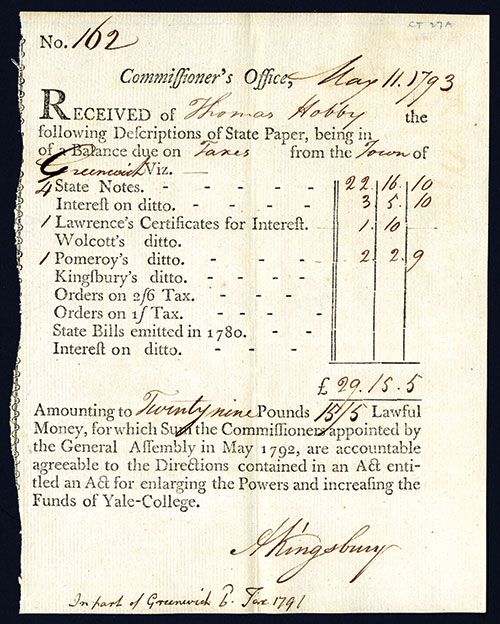 CT 27A
No. 162
Commiſſioner's Office, May 11. 1793
RECEIVED of Thomas Hobby the
following Deſcriptions of State Paper, being in
of a Balance due on Taxes from the Town of
Greenwich Viz. —
4 State Notes. - - - - - 22. 16. 10
Intereſt on ditto. - - - - 3. 5. 10
1 Lawrence's Certificates for Intereſt. 1. 10
Wolcott's ditto. - - - -
1 Pomeroy's ditto. - - - - 2. 2. 9
Kingſbury's ditto. - - - -
Orders on 2/6 Tax. - - - -
Orders on 1/ Tax. - - - -
State Bills emitted in 1780. - - -
Intereſt on ditto. - - - -
£ 29. 15. 5
Amounting to Twenty nine Pounds 15/5 Lawful
Money, for which Sum the Commiſſioners appointed by
the General Aſſembly in May 1792, are accountable
agreeable to the Directions contained in an Act enti-
tled an Act for enlarging the Powers and increaſing the
Funds of Yale-College.
AKingsbury
In part of Greenwich Tax 1791